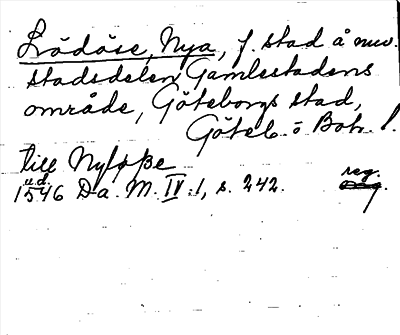 Lödöse, Nya, f. stad å nuv.
stadsdelen Gamlestadens
område, Göteborgs stad,
Göteb. o Boh. l.
till Nyløße
u.d.
1546 Da. M. IV:1, s. 242.
reg.